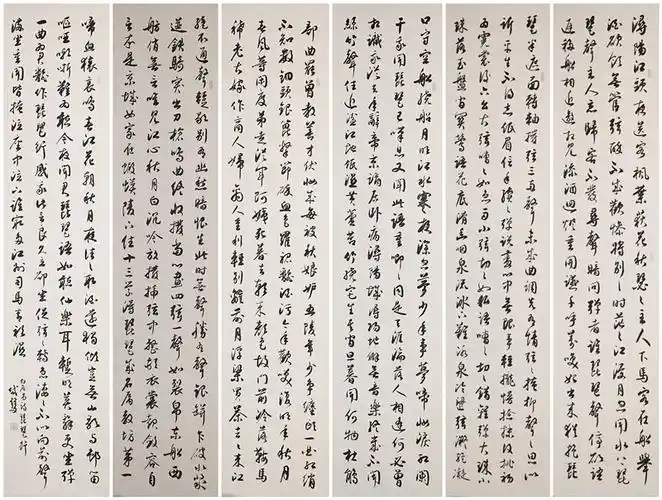 潯陽江頭夜送客楓葉荻花秋瑟瑟主人下馬客在船舉
酒欲飲無管弦醉不成歡慘將別別時茫茫江浸月忽聞水上琵
琶聲主人忘歸客不發尋聲暗問彈者誰琵琶聲停欲語
遲移船相近邀相見添酒迴燈重開讌千呼萬喚始出來猶抱琵
琶半遮面轉軸撥弦三兩聲未成曲調先有情弦弦掩抑聲聲思似
訴平生不得志低眉信手續續彈說盡心中無限事輕攏慢撚抹復挑初
為霓裳後六幺大弦嘈嘈如急雨小弦切切如私語嘈嘈切切錯雜彈大珠小
珠落玉盤間關鶯語花底滑幽咽泉流冰下難冰泉冷澀弦凝絕凝
口守空船繞船月明江水寒夜深忽夢少年事夢啼妝淚紅闌
干我聞琵琶已嘆息又聞此語重唧唧同是天涯淪落人相逢何必曾
相識我從去年辭帝京謫居臥病潯陽城潯陽地僻無音樂終歲不聞
絲竹聲住近湓江地低濕黃蘆苦竹繞宅生其間旦暮聞何物杜鵑
部曲罷曾教善才伏妝成每被秋娘妒五陵年少爭纏頭一曲紅綃
不知數鈿頭銀篦擊節碎血色羅裙翻酒污今年歡笑復明年秋月
春風等閒度弟走從軍阿姨死暮去朝來顏色故門前冷落鞍馬
稀老大嫁作商人婦商人重利輕別離前月浮梁買茶去去來江
絕不通聲暫歇別有幽愁暗恨生此時無聲勝有聲銀瓶乍破水漿
迸鐵騎突出刀槍鳴曲終收撥當心畫四弦一聲如裂帛東船西
舫悄無言唯見江心秋月白沉吟放撥插弦中整頓衣裳起斂容自
言本是京城女家在蝦蟆陵下住十三學得琵琶成名屬教坊第一
啼血猿哀鳴春江花朝秋月夜往往取酒還獨傾豈無山歌與村笛
嘔啞嘲哳難為聽今夜聞君琵琶語如聽仙樂耳暫明莫辭更坐彈
一曲為君翻作琵琶行感我此言良久立卻坐促弦弦轉急淒淒不似向前聲
滿座重聞皆掩泣座中泣下誰最多江州司馬青衫濕
白居易詩琵琶行